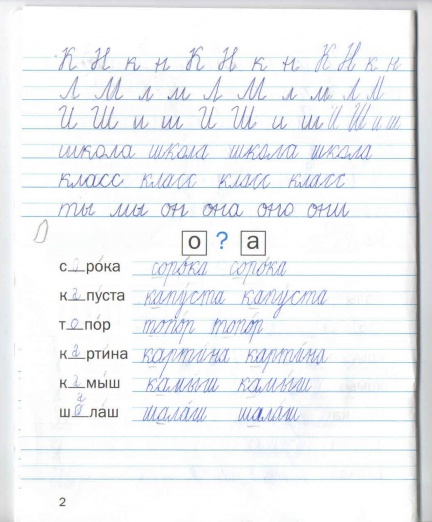 К Н к н К Н к н К Н к н
Л М л м Л М л м Л М
И Ш и ш И Ш и ш И Ш и ш
школа школа школа школа
класс класс класс класс
ты мы он она оно они
о ? а
с о рóка сорóка сорóка
к а пýста капýста капуста
т о пóр топóр топóр
к а ртúна картúна картúна
к а мы́ш камыш камы́ш
ш а лáш шалáш шалáш
2